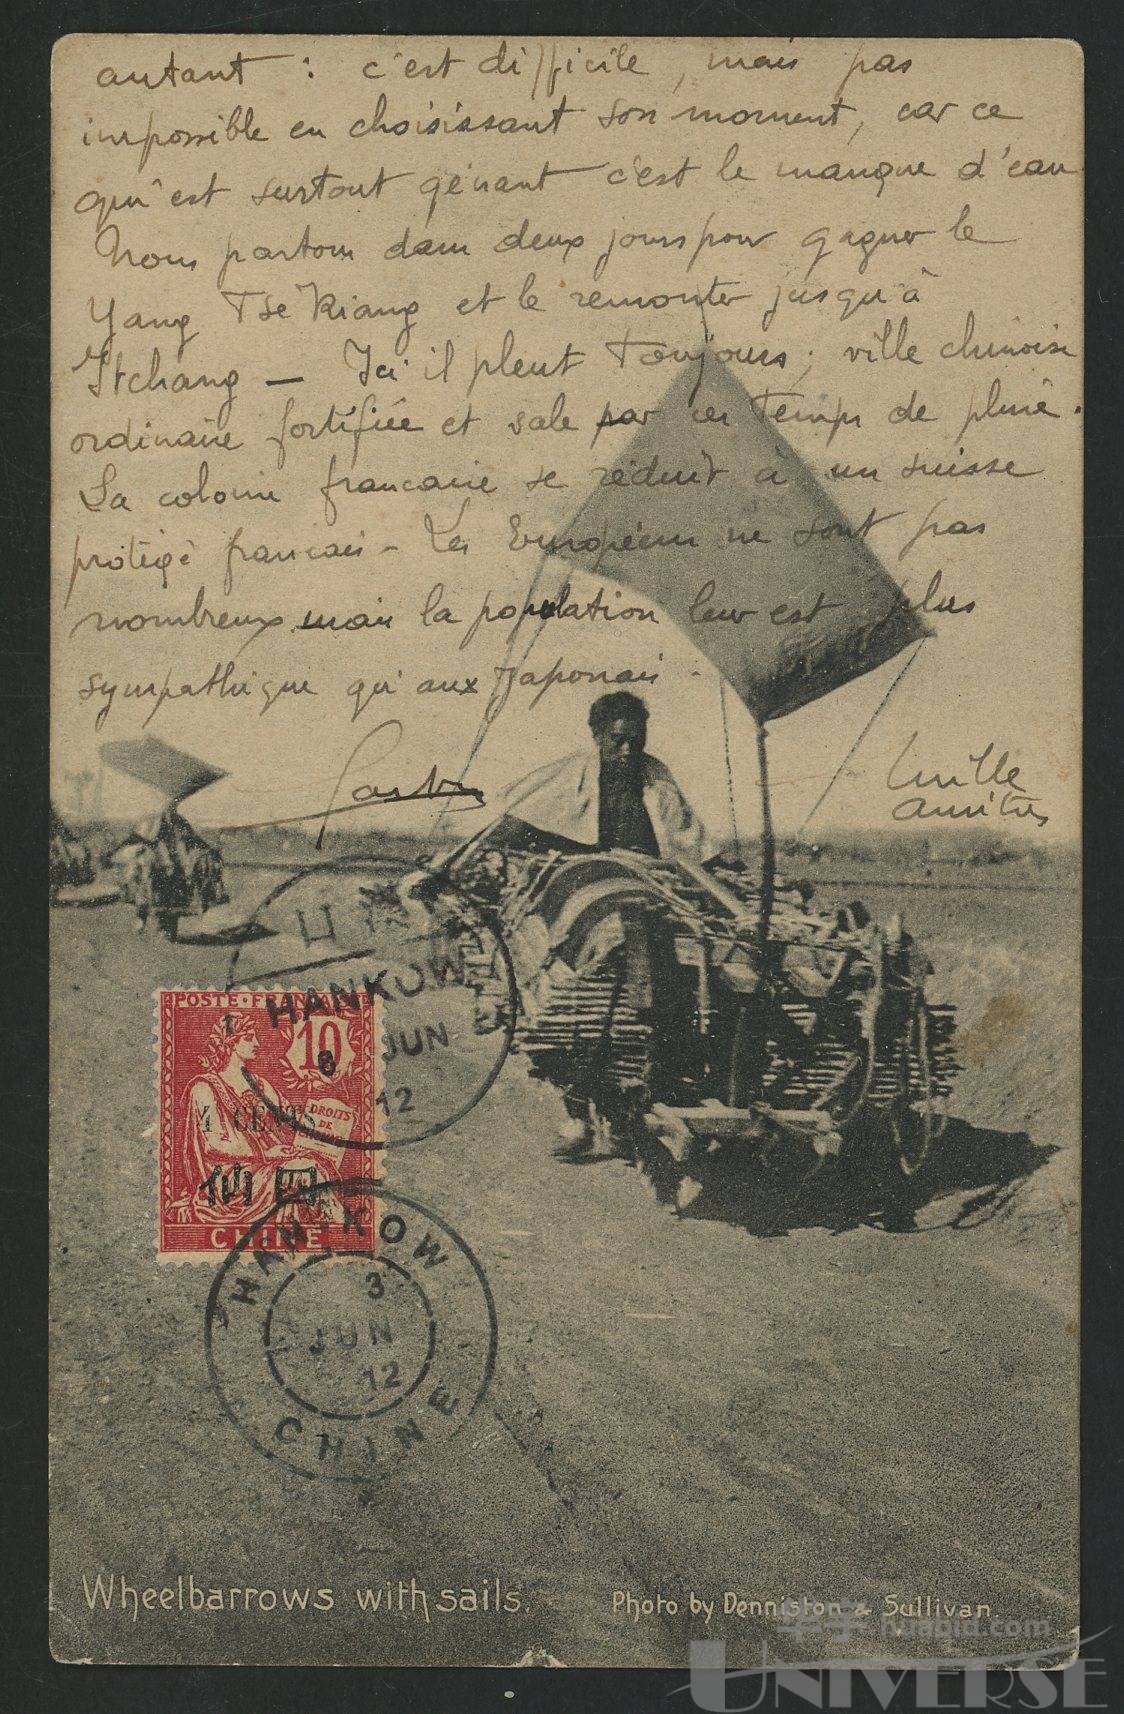 autant : c'est difficile, mais pas
impossible en choisissant son moment, car ce
qui est surtout gênant c'est le manque d'eau
Nous partons dans deux jours pour gagner le
Yang Tse Kiang et le remonter jusqu'à
Itchang — Ici il pleut toujours ; ville chinoise
ordinaire fortifiée et sale par ces temps de pluie.
La colonie francaise se réduit à un suisse
protégé francais – Les Européens ne sont pas
nombreux mais la population leur est plus
sympathique qu'aux Japonais.
Mille
amitiés
HANKOW
6 JUN
12
POSTE·FRANÇAISE
10
DROITS
DE
4 CENTS
仙四
CHINE
HANKOW
3
JUN
12
CHINE
Wheelbarrows with sails.
Photo by Denniston & Sullivan.
华宇 huabid.com
UNIVERSE